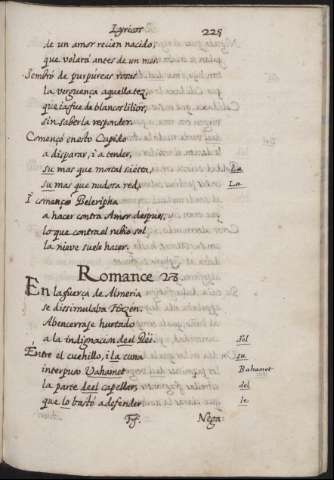 Lyricos 225
de un amor recien nacido,
que volarà antes de un mes.
Sembrò de purpureas rosas
la verguença aquella tez,
que ia fue de blancos lilios,
sin saberla responder.
Començò en esto Cupido
a disparar, i a tender,
su mas que mortal saeta, La
su mas que nudosa red, La
I començò
a hacer contra Amor despues,
lo que contra el rubio sol
la nieve suele hacer.
Romance 28
En la fuerça de Almeria
se dissimulaba Hazen,
Abencerraje hurtado
a la indignacion del Rei. Sol
Entre el cuchillo, i la cuna su
interpuso Vahamet Bahamet
la parte del capellar, del
que lo bastò a defender le
Ff. Nega